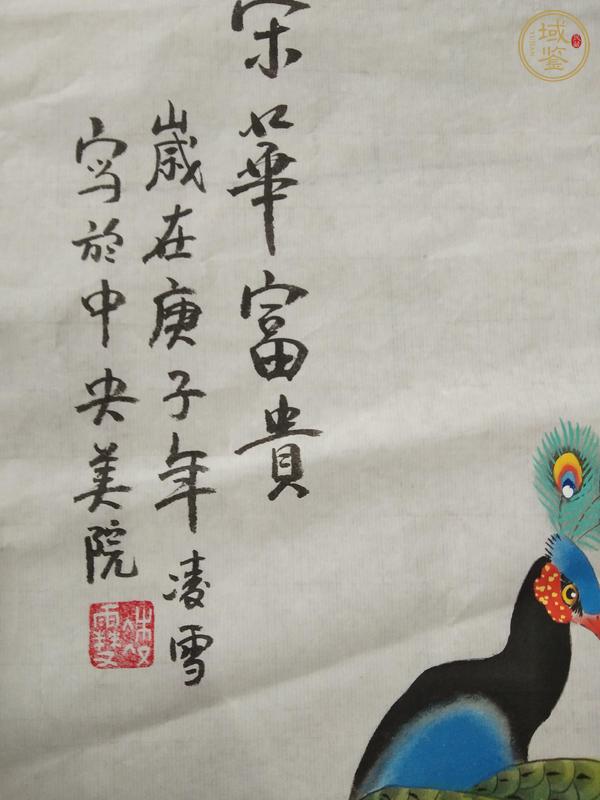 荣華富貴
歲在庚子年凌雪
写於中央美院
域鉴